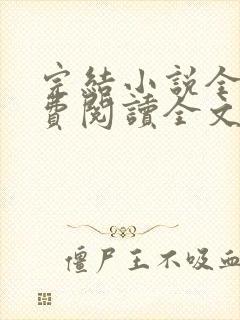 完結小説全
費閱讀全文
僵尸王不吸血